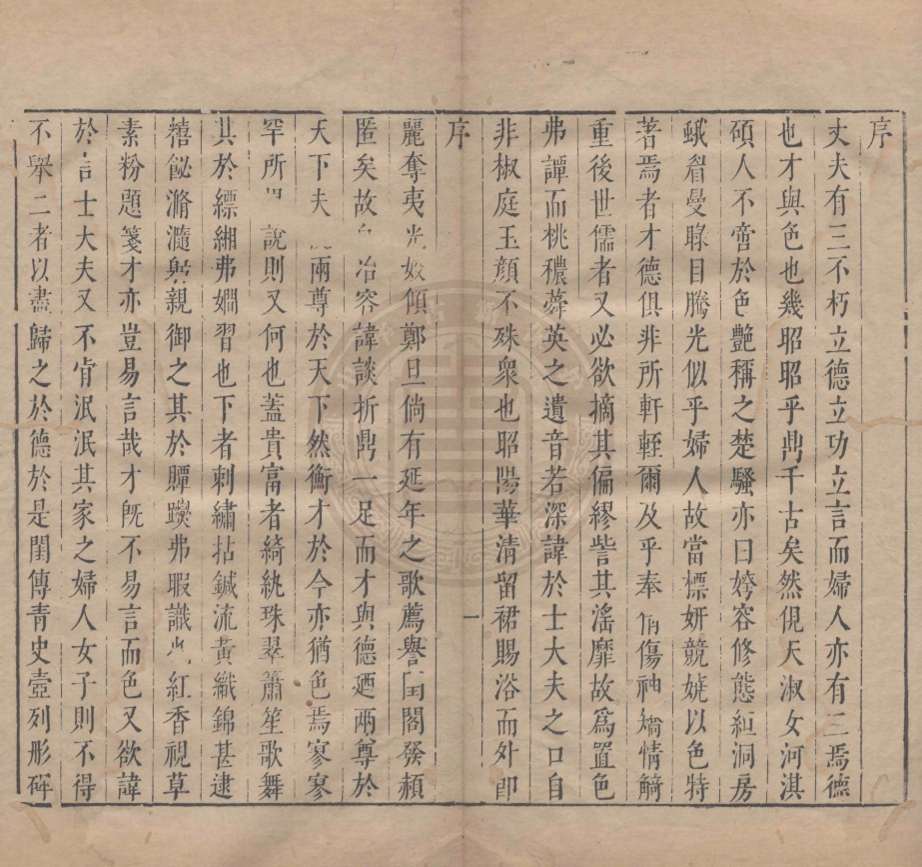 序
丈夫有三不朽立德立功立言而婦人亦有三焉德
也才與色也幾昭昭乎鼎千古矣然俔天淑女河淇
碩人不啻於色艷稱之楚騷亦曰姱容修態絙洞房
蛾眉曼睩目騰光似乎婦人故當標妍競嬈以色特
著焉者才德俱非所軒輊爾及乎奉倩傷神嬌情
重後世儒者又必欲摘其偏繆訾其滛靡故爲置色
弗譚而桃穠蕣英之遺音若深諱於士大夫之口自
非椒庭玉顏不殊衆也昭陽華清留裙賜浴而外即
序
一
麗奪夷光姣傾鄭旦倘有延年之歌薦譽閨閣發頳
匿矣故 冶容諱談折鼎一足而才與德廼兩尊於
天下夫 兩尊於天下然衡才於今亦猶色焉寥寥
罕所 說則又何也蓋貴富者綺紈珠翠簫笙歌舞
其於縹緗弗嫺習也下者刺繡拈鍼流黃織錦甚逮
饎飶滫瀡躬親御之其於贉躞弗暇識 紅香視草
素粉題箋才亦豈易言哉才旣不易言而色又欲諱
於言士大夫又不肯泯泯其家之婦人女子則不得
不舉二者以盡歸之於德於是閨傳青史壼列形碑